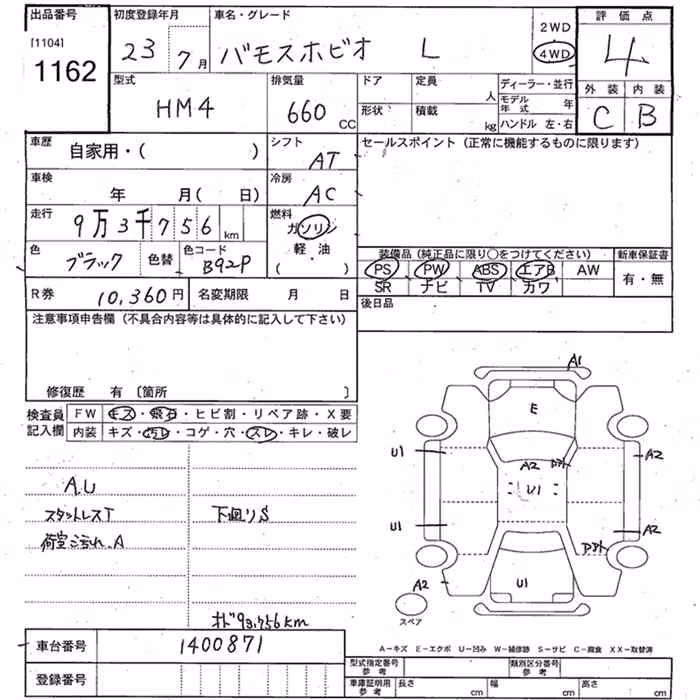 出品番号 初度登録年月 車名・グレード 2WD 評価点
[1104] 1162 23年 7月 バモスホビオ L 4WD 4
型式 排気量 ドア 定員 人 ディーラー・並行 外装 内装
HM4 660cc 形状 積載 kg モデル年式 年 C B
ハンドル 左・右
車歴 自家用・( ) シフト AT セールスポイント (正常に機能するものに限ります)
車検 年 月(日) 冷房 AC
走行 9万3千756km 燃料 ガソリン
軽・油
( )
色 ブラック 色替 色コード B92P
装備品(純正品に限り○をつけてください) 新車保証書
PS PW ABS エアB AW 有・無
SR ナビ TV カワ
R券 10,360円 名変期限 月 日 後日品
注意事項申告欄 (不具合内容等は具体的に記入して下さい)
修復歴 有 〔箇所 〕
検査員記入欄 FW キズ・飛石・ヒビ割・リペア跡・X要
内装 キズ・汚レ・コゲ・穴・スレ・キレ・破レ
A.U
スタットレスT 下廻りS
荷室こ汚れ.A
オド93.756km
A1
E
U1 A2 A2
U1
U1 A2
U1
A2
スペア
A－キズ E－エクボ U－凹み W－補修跡 S－サビ C－腐食 XX－取替済
車台番号 1400871
登録番号
型式指定番号 参考 類別区分番号 参考
車庫証明用 参考 長さ cm 幅 cm 高さ cm